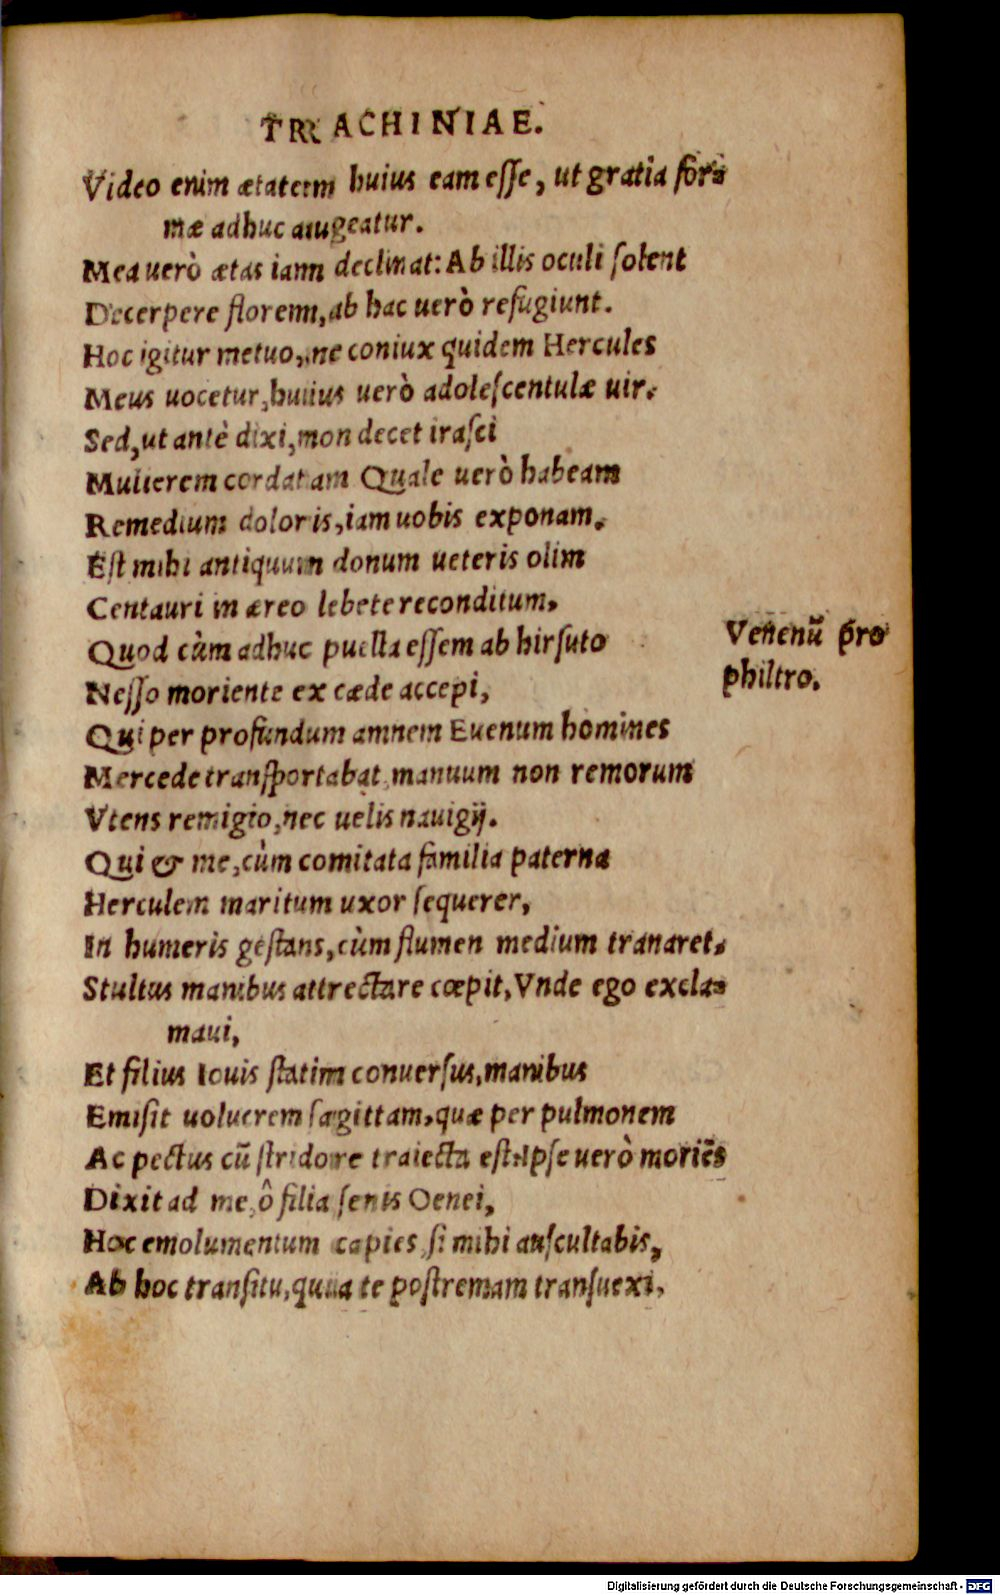 TRACHINIAE.
Video enim ætatem huius eam esse, ut gratia for-
mæ adhuc augeatur.
Mea uerò ætas iam declinat: Ab illis oculi solent
Decerpere florem, ab hac uerò refugiunt.
Hoc igitur metuo, ne coniux quidem Hercules
Meus uocetur, huius uerò adolescentulæ uir.
Sed, ut antè dixi, non decet irasci
Mulierem cordatam Quale uerò habeam
Remedium doloris, iam uobis exponam.
Est mihi antiquum donum ueteris olim
Centauri in æreo lebete reconditum.
Quod cùm adhuc puella essem ab hirsuto
Venenũ pro
philtro.
Nesso moriente ex cæde accepi,
Qui per profundum amnem Euenum homines
Mercede transportabat, manuum non remorum
Vtens remigio, nec uelis nauigij.
Qui & me, cùm comitata familia paterna
Herculem maritum uxor sequerer,
In humeris gestans, cùm flumen medium tranaret,
Stultus manibus attrectare cœpit, Vnde ego excla-
maui,
Et filius Iouis statim conuersus, manibus
Emisit uolucrem sagittam, quæ per pulmonem
Ac pectus cũ stridore traiecta est. Ipse uerò moriẽs
Dixit ad me, ô filia senis Oenei,
Hoc emolumentum capies, si mihi auscultabis,
Ab hoc transitu, quia te postremam transuexi,
Digitalisierung gefördert durch die Deutsche Forschungsgemeinschaft - DFG